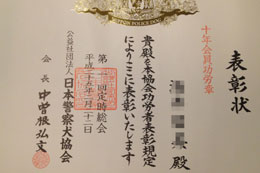 NIPPON POLICE DOG
表彰状
十年会員功労章
殿
貴殿を本協会功労者表彰規定
によりここに表彰いたします
第一回定時総会
平成二十五年二月二十二日
公益社団法人 日本警察犬協会
会長 中曽根弘文